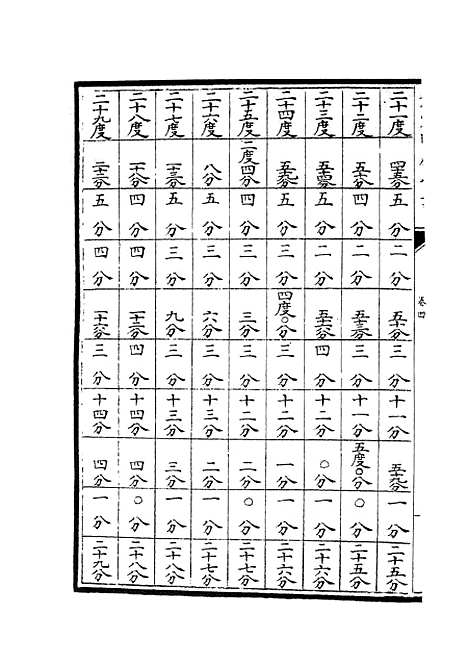 卷四
二十一度 四十五分 五分 二分 五十分 三分 十一分 五十九分 一分 二十五分
二十二度 五十分 四分 二分 五十三分 三分 十一分 五度〇分 〇分 二十五分
二十三度 五十四分 五分 二分 五十六分 四分 十二分 〇分 一分 二十六分
二十四度 五十九分 五分 三分 四度〇分 三分 十二分 一分 一分 二十六分
二十五度 二度四分 四分 三分 三分 三分 十二分 二分 〇分 二十七分
二十六度 八分 五分 三分 六分 三分 十三分 二分 一分 二十七分
二十七度 一十三分 五分 三分 九分 三分 十三分 三分 一分 二十八分
二十八度 一十八分 四分 四分 一十二分 四分 十四分 四分 〇分 二十八分
二十九度 二十二分 五分 四分 一十六分 三分 十四分 四分 一分 二十九分